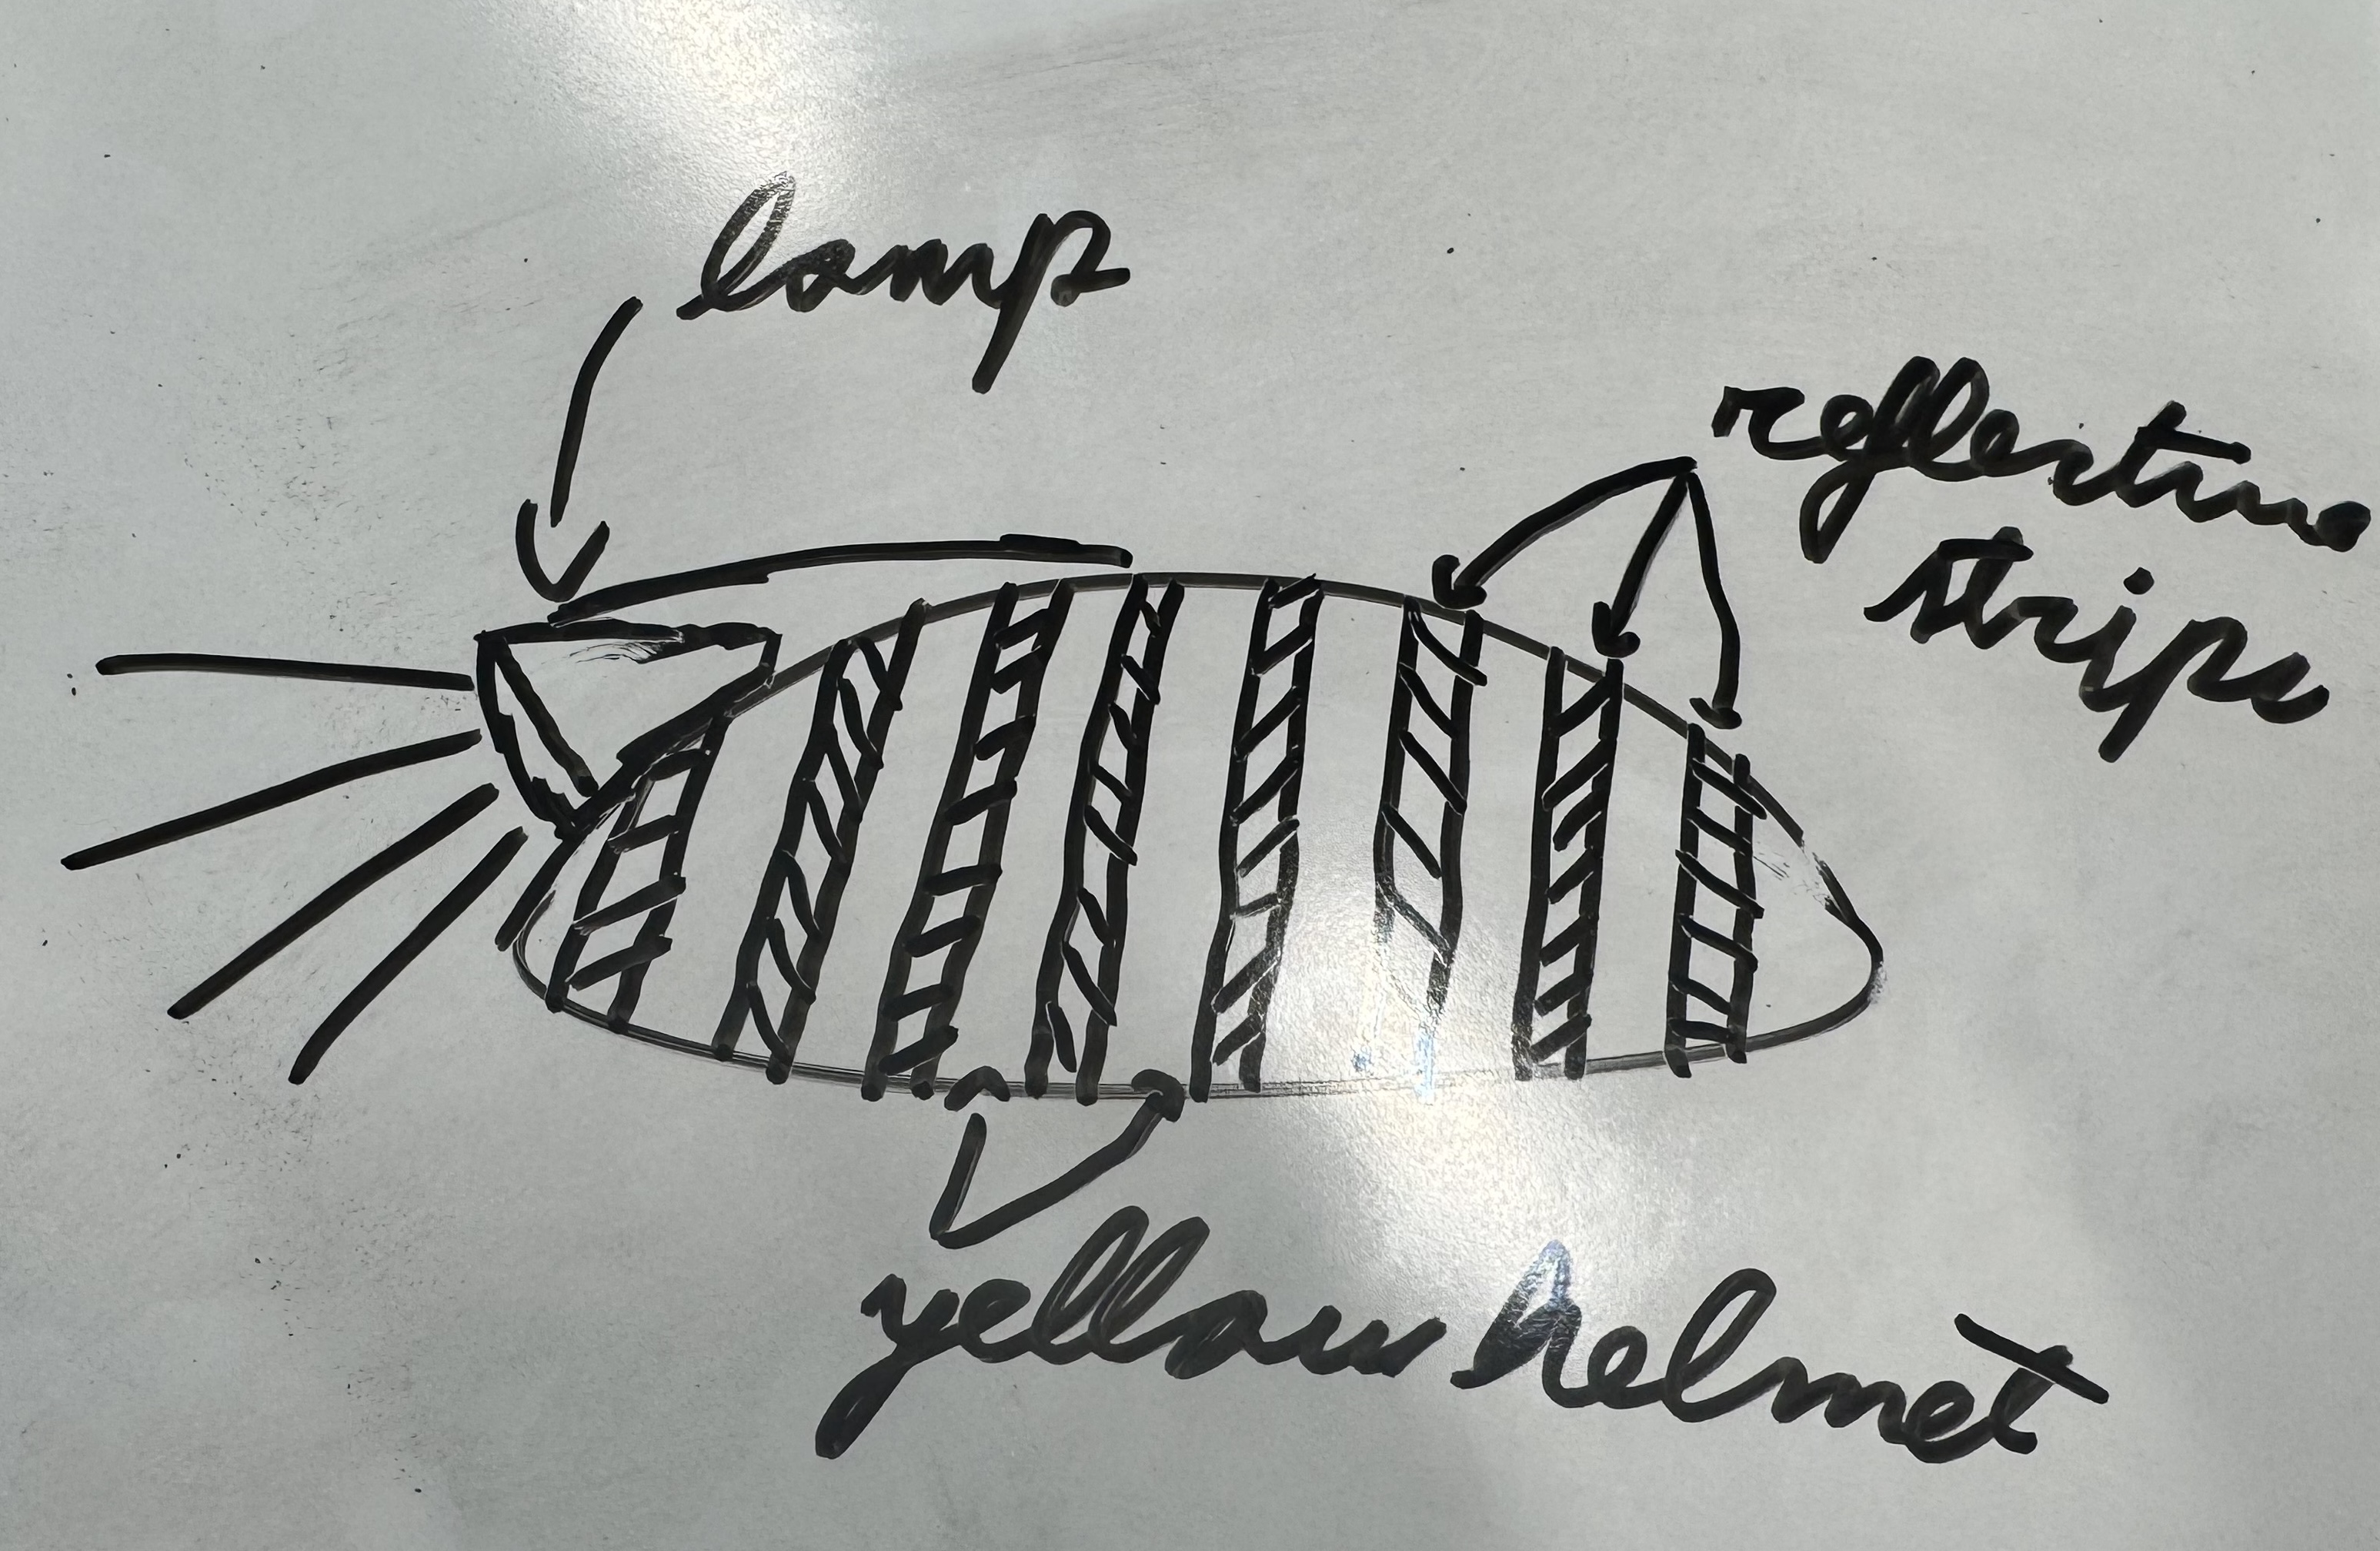 lamp
reflective
strips
yellow helmet